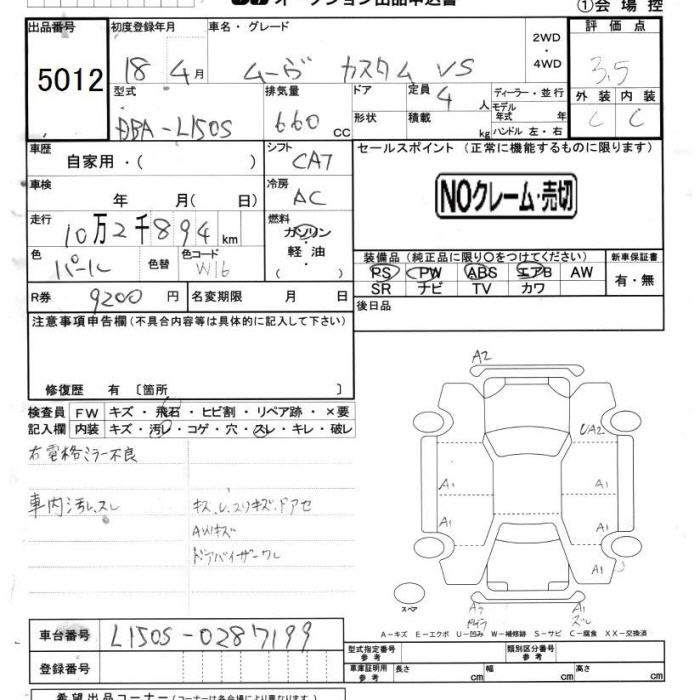 オークション出品申込書
①会場控
出品番号 初度登録年月 車名・グレード 2WD・4WD 評価点
5012 18年4月 ムーヴ カスタム VS 3.5
型式 排気量 ドア 定員 4人 ディーラー・並行 外装 内装
DBA-L150S 660cc 形状 積載 kg モデル年式 年 ハンドル 左・右 C C
車歴 シフト セールスポイント (正常に機能するものに限ります)
自家用・( ) CA7
車検 冷房
年 月(日) AC NOクレーム・売切
走行 燃料
10万2千894km ガソリン・軽油・( )
色 色替 色コード 装備品(純正品に限り○をつけてください) 新車保証書
パール W16 PS PW ABS エアB AW 有・無
SR ナビ TV カワ
R券 9200円 名変期限 月 日 後日品
注意事項申告欄(不具合内容等は具体的に記入して下さい)
修復歴 有 〔箇所 〕
検査員 FW キズ・飛石・ヒビ割・リペア跡・×要
記入欄 内装 キズ・汚レ・コゲ・穴・スレ・キレ・破レ
右電格ミラー不良
車内汚レ、スレ キズ、U、スリキズ、ドアセ
AWキズ
ドアバイザーワレ
A2
UA2
A1 A1
A1 A1
A1
スペア
A1
スレ
A-キズ E-エクボ U-凹み W-補修跡 S-サビ C-腐食 XX-交換済
車台番号 L150S-0287199 型式指定番号 参考 類別区分番号 参考
登録番号 車庫証明用 参考 長さ cm 幅 cm 高さ cm
希望出品コーナー(コーナーは各会場により異なります。)